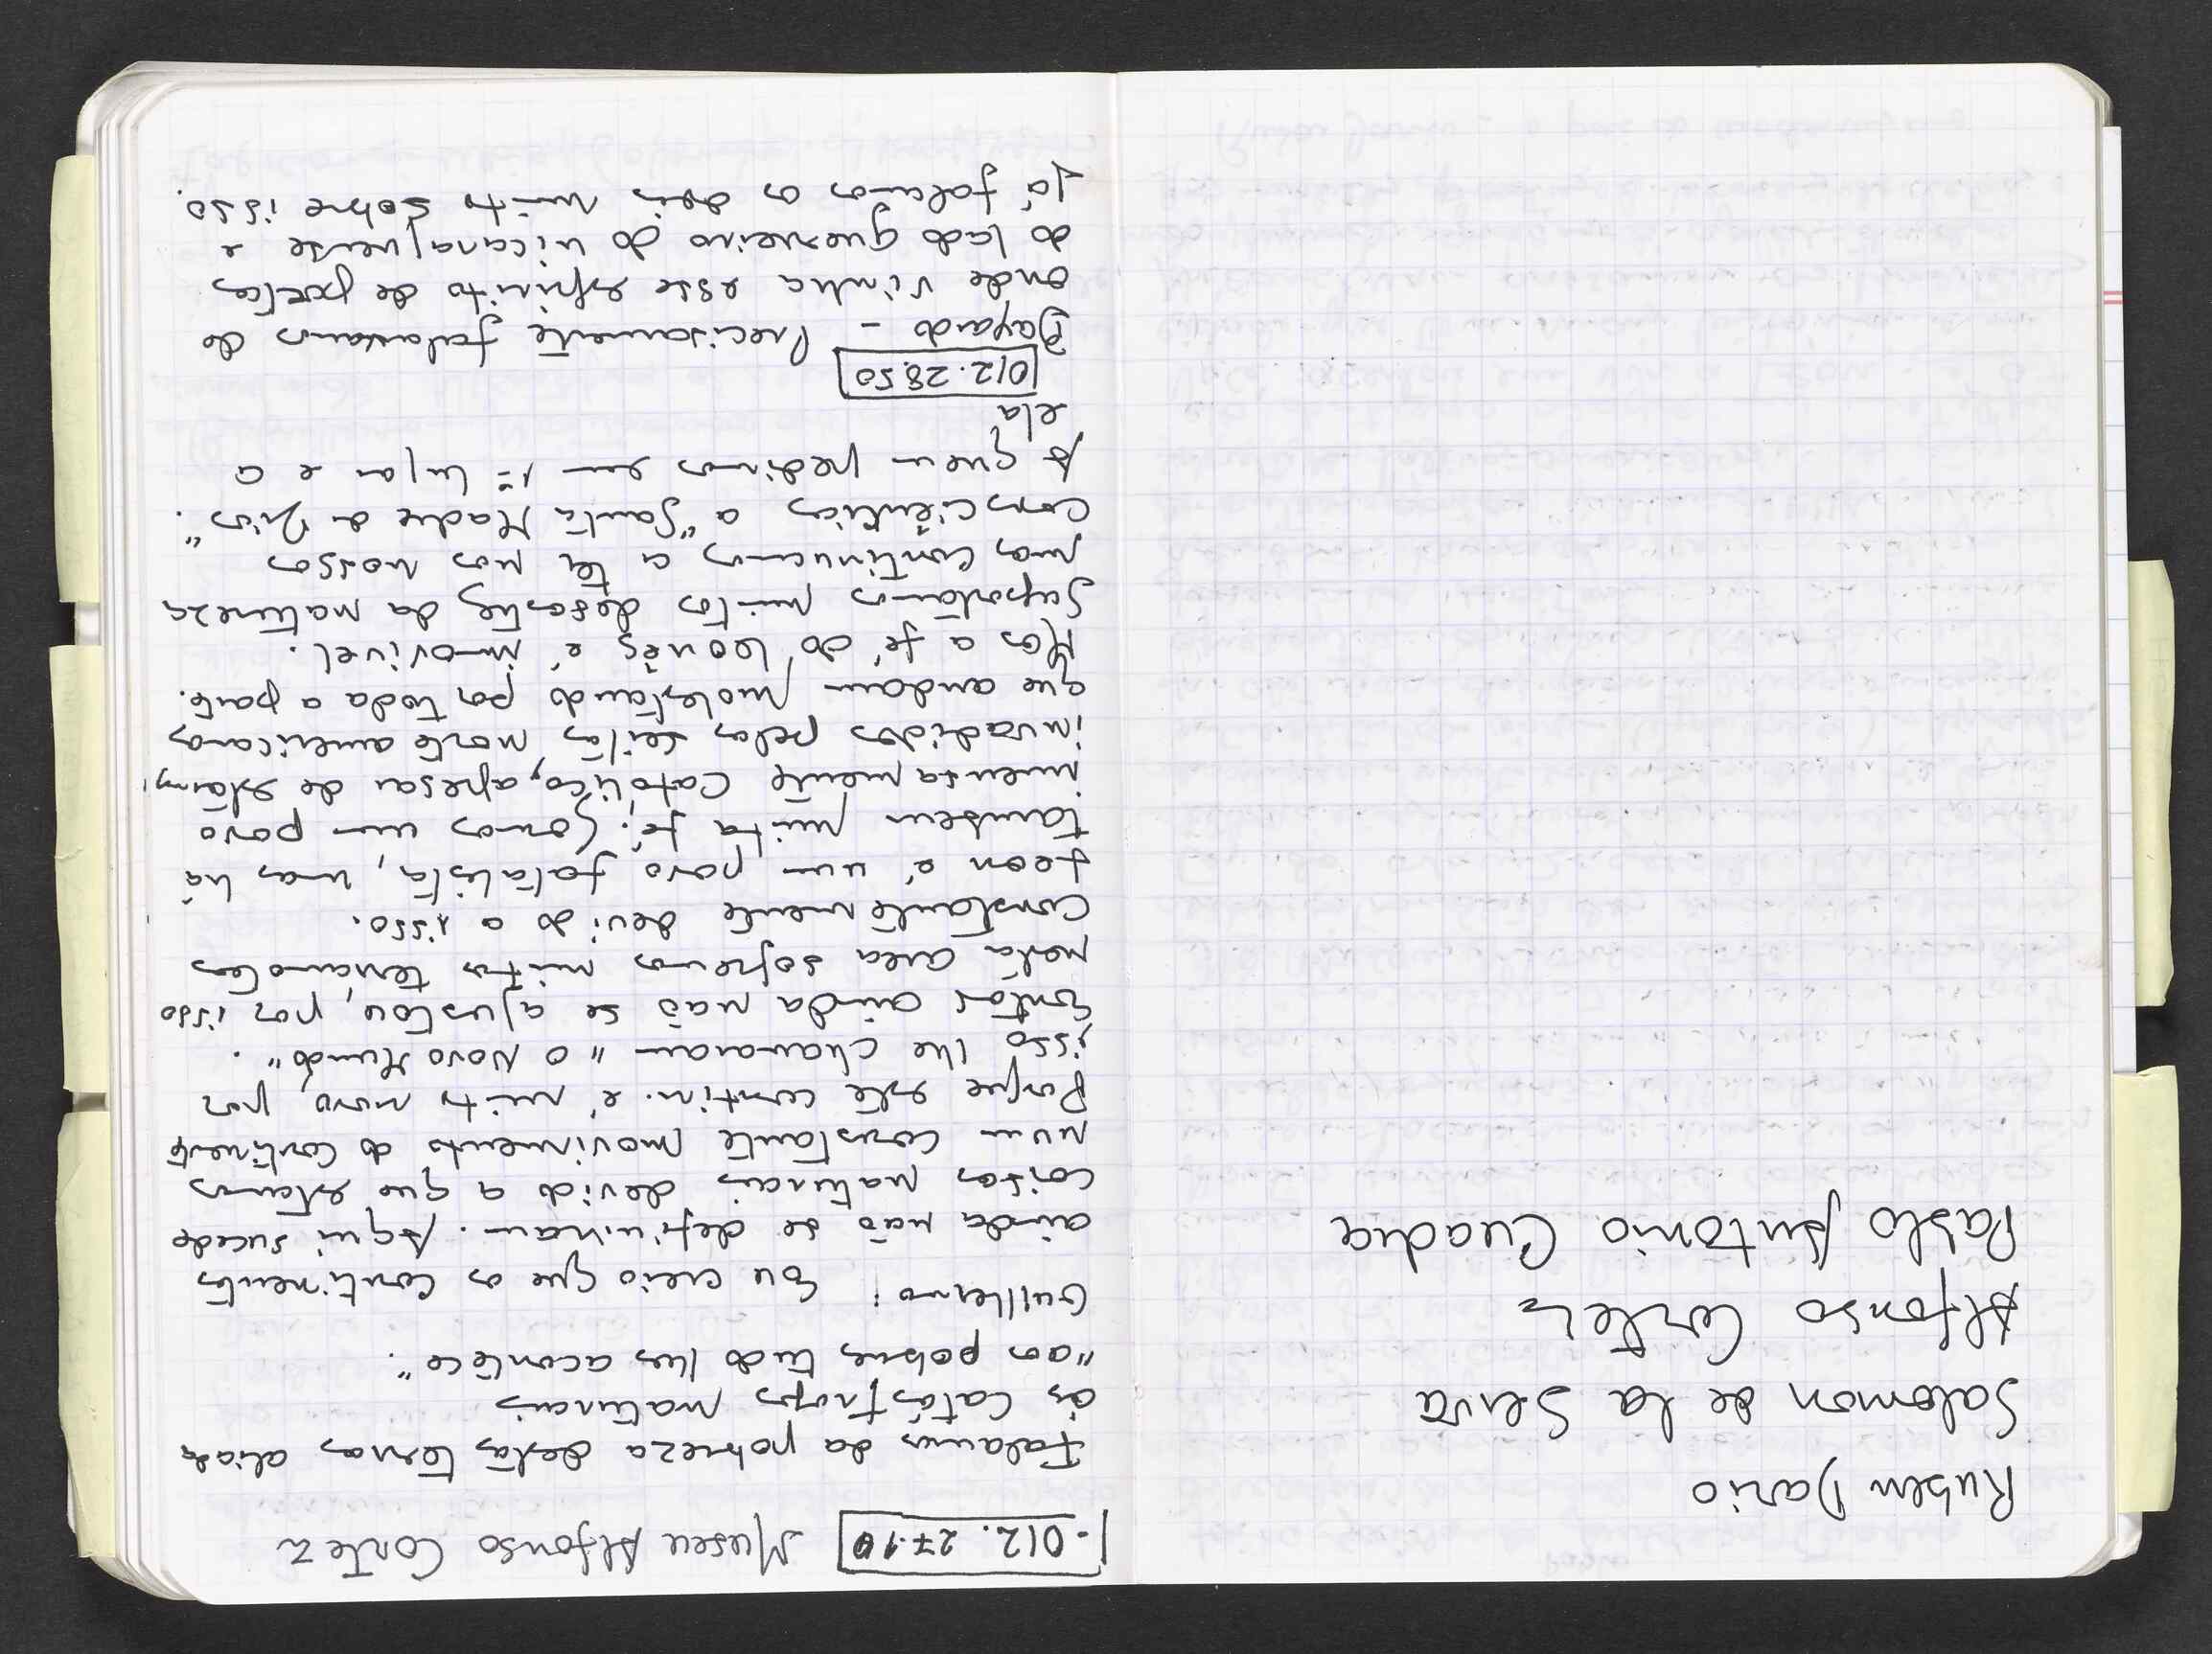 Ruben Dario
Salomon de la Selva
Alfonso Cortez
Pablo Antonio Cuadra
012. 27.10 Museu Alfonso Cortez
Falamos da pobreza destas terras aliada
às catástrofes naturais
"aos pobres tudo lhes acontece".
Guillermo: Eu creio que os continentes
ainda não se definiram. Aqui sucede
coisas naturais devido a que estamos
num constante movimento do continente
Porque este contin. é muito novo, por
isso lhe chamaram "o Novo Mundo".
Então ainda não se ajustou, por isso
nesta area sofremos muitos terramotos
constantemente devido a isso.
Leon é um povo fatalista, mas há
tambem muita fé. Somos um povo
imensamente católico, apesar de estarmos
invadidos pelas seitas norte americanas
que andam molestando por toda a parte.
Mas a fé do leonês é imovivel.
Suportamos muitos desastres da natureza
mas continuamos a ter nos nossos
consciências a "Santa Madre de Dios".
A quem pedimos em 1º lugar e a
ela
012. 28.50
Bayardo - Precisamente falavamos de
onde vinha esse espirito de poetas
do lado guerreiro do nicaraguense e
já falamos os dois muito sobre isso.